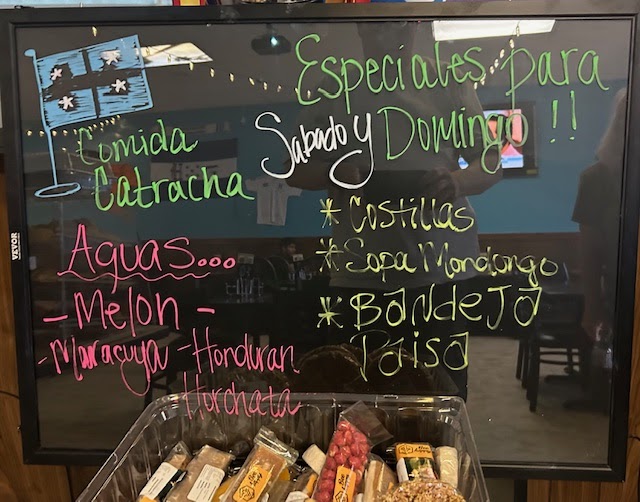 Especiales para
Sabado y Domingo !!
Comida
Catracha
* Costillas
* Sopa Mondongo
* Bandeja
Paisa
Aguas...
- Melon -
- Maracuya - Honduran
Horchata
VEVOR